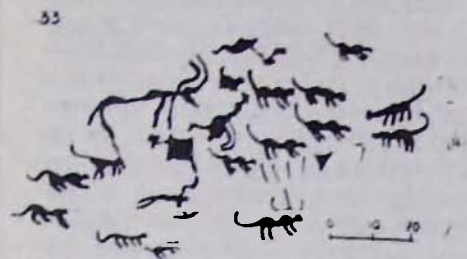 33
0 10 20